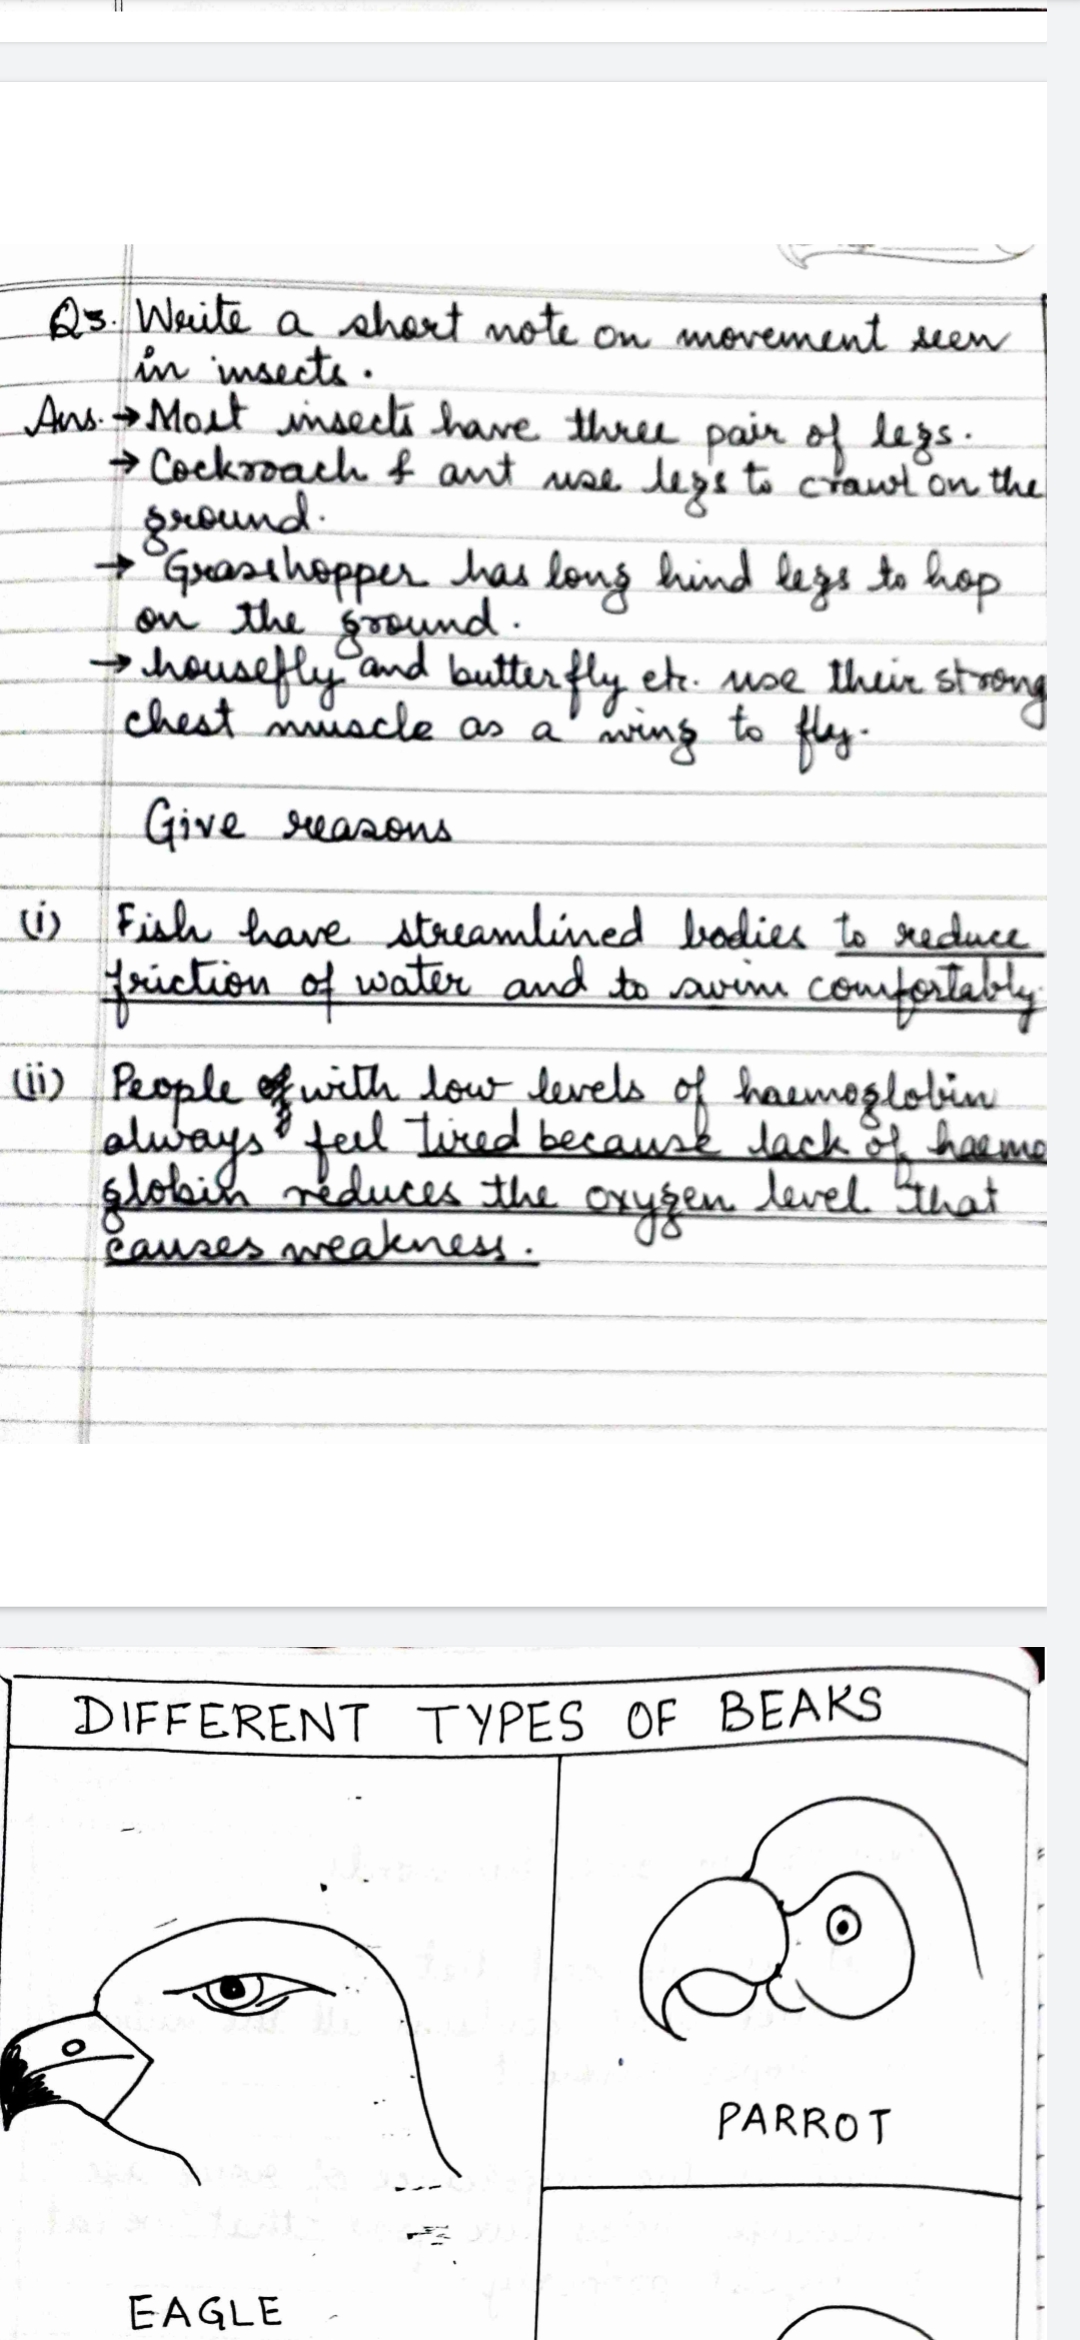 Q3. Write a short note on movement seen
in insects.
Ans. → Most insects have three pair of legs.
→ Cockroach & ant use legs to crawl on the
ground.
→ Grasshopper has long hind legs to hop
on the ground.
→ housefly and butterfly etc. use their strong
chest muscle as a wing to fly.
Give reasons
(i) Fish have streamlined bodies to reduce
friction of water and to swim comfortably
(ii) People with low levels of haemoglobin
always feel tired because lack of haemo
globin reduces the oxygen level that
causes weakness.
DIFFERENT TYPES OF BEAKS
PARROT
EAGLE